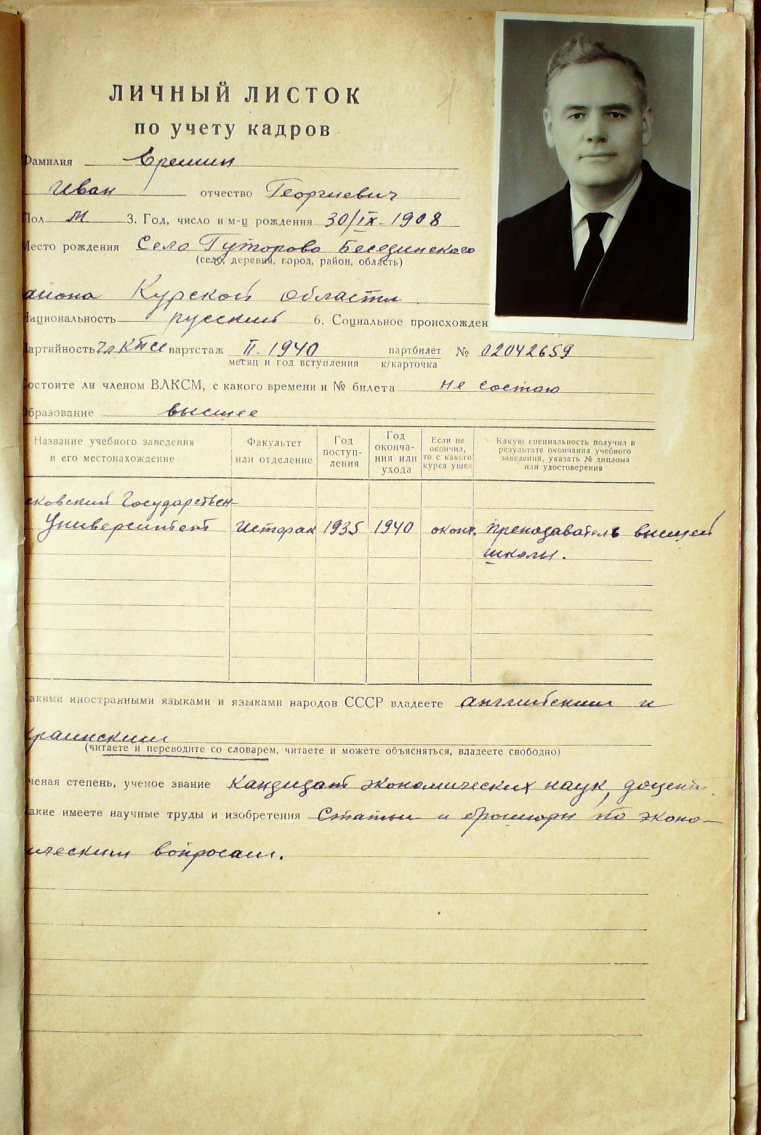 ЛИЧНЫЙ ЛИСТОК
по учету кадров
Фамилия Еремин
Иван отчество Георгиевич
Пол м. 3. Год, число и м-ц рождения 30/IX-1908
Место рождения Село Гуторово Беседненского
(село, деревня, город, район, область)
айона Курской области
Национальность русский 6. Социальное происхожден
Партийность чл. КПСС партстаж II. 1940 партбилет № 02042659
месяц и год вступления к/карточка
Состоите ли членом ВЛКСМ, с какого времени и № билета не состою
Образование высшее
Название учебного заведения и его местонахождение Факультет или отделение Год поступ-ления Год оконча-ния или ухода Если не окончил, то с какого курса ушел Какую специальность получил в результате окончания учебного заведения, указать № диплома или удостоверения
сковский Государствен-
Университет Истфак 1935 1940 оконч. Преподаватель высшей
школы.
акими иностранными языками и языками народов СССР владеете английским и
краинским
(читаете и переводите со словарем, читаете и можете объясняться, владеете свободно)
ченая степень, ученое звание Кандидат экономических наук, доцент.
акие имеете научные труды и изобретения Статьи и брошюры по эконо-
мическим вопросам.